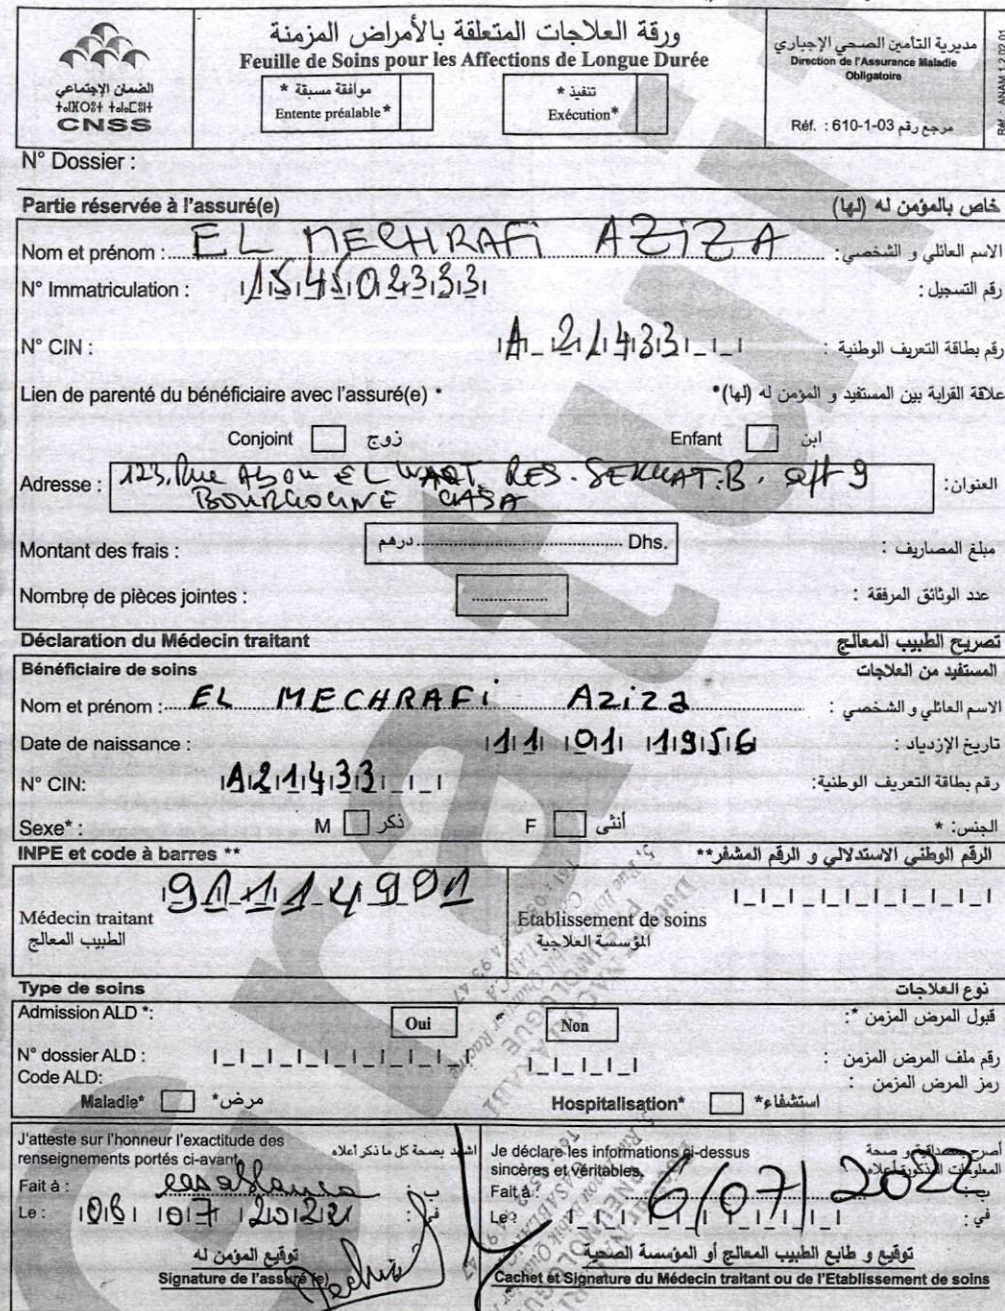 الضمان الإجتماعي
CNSS
ورقة العلاجات المتعلقة بالأمراض المزمنة
Feuille de Soins pour les Affections de Longue Durée
موافقة مسبقة *
Entente préalable*
تنفيذ *
Exécution*
مديرية التأمين الصحي الإجباري
Direction de l'Assurance Maladie
Obligatoire
Réf. : 610-1-03 مرجع رقم
Réf. : ANAM 1.2.02.01
N° Dossier :
Partie réservée à l'assuré(e) خاص بالمؤمن له (لها)
Nom et prénom : EL MECHRAFi AZiZA الاسم العائلي و الشخصي:
N° Immatriculation : 154502333 رقم التسجيل :
N° CIN : A_21433 رقم بطاقة التعريف الوطنية :
Lien de parenté du bénéficiaire avec l'assuré(e) * علاقة القرابة بين المستفيد و المؤمن له (لها)*
Conjoint زوج Enfant ابن
Adresse : 123, Rue Abou EL WAQT. RES. B. 9 العنوان:
BOURGOGNE CASA
Montant des frais : درهم Dhs. مبلغ المصاريف :
Nombre de pièces jointes : عدد الوثائق المرفقة :
Déclaration du Médecin traitant تصريح الطبيب المعالج
Bénéficiaire de soins المستفيد من العلاجات
Nom et prénom : EL MECHRAFi Aziza الاسم العائلي و الشخصي :
Date de naissance : 11 01 1956 تاريخ الإزدياد :
N° CIN: A21433 رقم بطاقة التعريف الوطنية:
Sexe* : M ذكر F أنثى الجنس: *
INPE et code à barres ** الرقم الوطني الاستدلالي و الرقم المشفر**
911114901
Médecin traitant
الطبيب المعالج
Etablissement de soins
المؤسسة العلاجية
Type de soins نوع العلاجات
Admission ALD *: Oui Non قبول المرض المزمن *:
N° dossier ALD : رقم ملف المرض المزمن :
Code ALD: رمز المرض المزمن :
Maladie* مرض* Hospitalisation* استشفاء*
J'atteste sur l'honneur l'exactitude des
renseignements portés ci-avant. اشهد بصحة كل ما ذكر أعلاه
Fait à : casablanca ب :
Le : 06 07 2022 في :
توقيع المؤمن له
Signature de l'assuré (e)
Je déclare les informations ci-dessus
sincères et véritables.
اصرح بمصداقية و صحة
المعلومات المذكورة أعلاه
Fait à : ب :
Le : 6/07/2022 في :
توقيع و طابع الطبيب المعالج أو المؤسسة الصحية
Cachet et Signature du Médecin traitant ou de l'Etablissement de soins